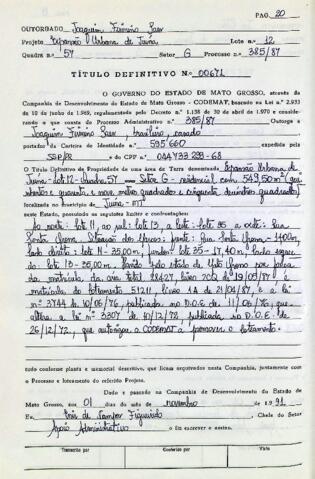 PAG 20
OUTORGADO Joaquim Firmino Paes
Projeto Expansão Urbana de Juína Lote n.º 12
Quadra n.º 57 Setor G Processo n.º 385/87
TÍTULO DEFINITIVO N.º 00671
O GOVERNO DO ESTADO DE MATO GROSSO, através da
Companhia de Desenvolvimento do Estado de Mato Grosso - CODEMAT, baseado na Lei n.º 2.933
de 10 de junho de 1.969, regulamentada pelo Decreto n.º 1.138 de 30 de abril de 1970 e conside-
rando o que consta do Processo Administrativo n.º 385/87 Outorga a
Joaquim Firmino Paes, brasileiro, casado
portador da Carteira de Identidade n.º 595660 expedida pela
SSP/PR do CPF n.º
O Título Definitivo de Propriedade de uma área de Terra denominada Expansão Urbana de
Juína - lote 12 - Quadra 57 - Setor G - residencial com 549,50 m² (qui
nhentos e quarenta e nove metros quadrados e cinquenta decímetros quadrados)
localizada no município de Juína - MT
neste Estado, possuindo os seguintes limites e confrontações:
ao norte: lote 11, ao sul: lote 13, a leste: lote 35 a oeste: Rua
frente: Rua 14,00m,
lado direito: lote 11 - 35,00 m, fundos: lote 35 - 17,40 m, lado esquer
do: lote 13 - 35,00 m,
da matrícula da área total 28427, livro de 19/05/87 e
matrícula do loteamento 51211, livro 1A de 21/04/87, e a lei
n.º 3744 de 10/06/76, publicada no D.O.E de 11/06/76, que
altera a lei n.º 3307 de 18/12/72 publicada no D.O.E. de
26/12/72, que autorizou a CODEMAT a promover o loteamento.
tudo conforme planta e memorial descritivo, que ficam arquivados nesta Companhia, juntamente com
o Processo e loteamento do referido Projeto.
Dado e passado na Companhia de Desenvolvimento do Estado de
Mato Grosso, aos 01 dias do mês de novembro de 1991
Eu, Inês de Figueiredo, Chefe do Setor
Apoio Administrativo o fiz escrever e assino.
Transcrito por Conferido por Visto